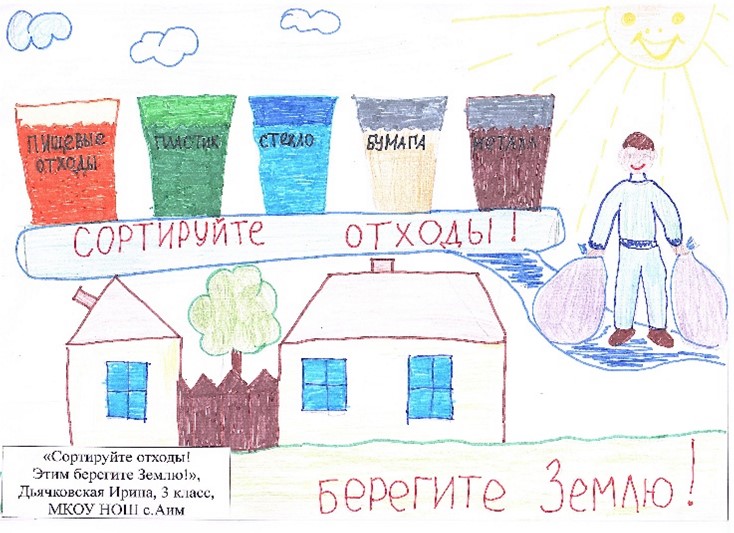 ПИЩЕВЫЕ
ОТХОДЫ
ПЛАСТИК
СТЕКЛО
БУМАГА
МЕТАЛЛ
СОРТИРУЙТЕ ОТХОДЫ!
«Сортируйте отходы!
Этим берегите Землю!»,
Дьячковская Ирина, 3 класс,
МКОУ НОШ с.Аим
БЕРЕГИТЕ ЗЕМЛЮ!